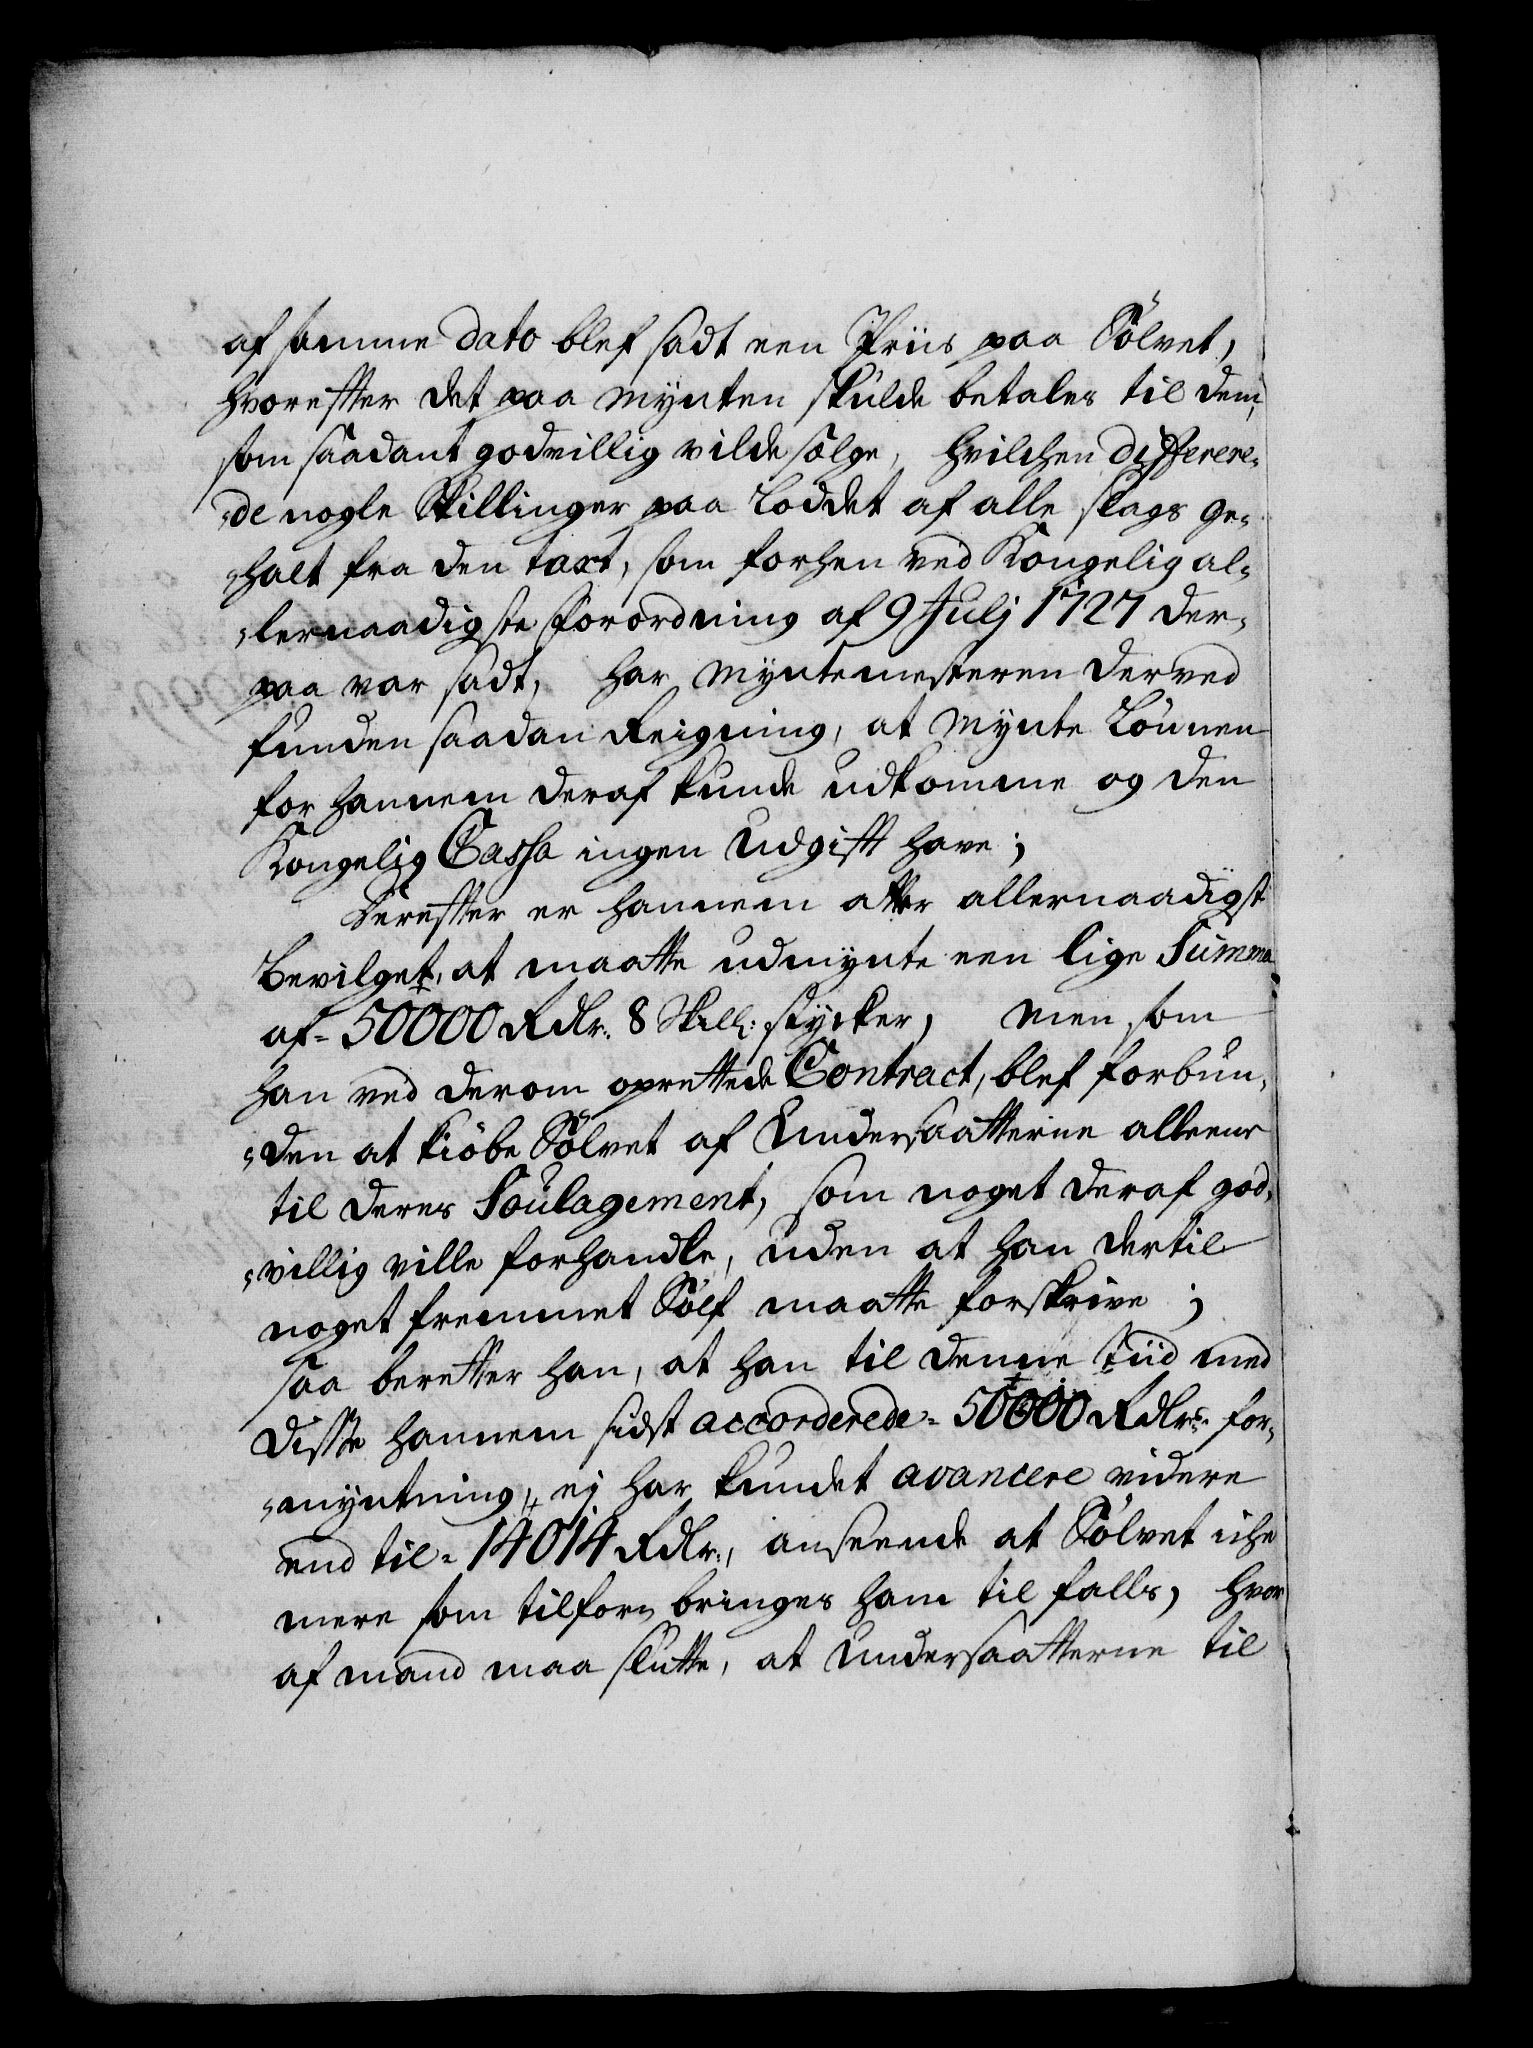 af samme dato blef sadt een Priis paa Sölvet,
hvorefter det paa Mynten skulde betales til dem,
som saadant godvillig vilde sælge, hvilchen differere-
-de nogle Skillinger paa Loddet af alle slags ge-
-halt fra den taxt, som forhen ved Kongelig al-
-lernaadigste forordning af 9 Julj 1727 der-
paa var sadt, har Myntemesteren derved
funden saadan Reigning, at Mynte Lönnen
for hannem deraf kunde udkomme og den
Kongelig Cassa ingen Udgift have;
Derefter er hannem atter allernaadigst
Bevilget, at maatte udmynte een lige Summa
af = 50000 Rdlr. 8 Skill: stycker, Men, som
han ved derom oprettede Contract, blef forbun-
-den at kiöbe Sölvet af Undersaatterne alleene
til deres Soulagement, som noget deraf god-
-villig ville forhandle, uden at han dertil
noget fremmet Sölf maatte forskrive;
saa beretter han, at han til denne tiid med
disse hannem sidst accorderede = 50000 Rdlrs. for-
-myntning, ej har kundet avancere videre
end til = 14014 Rdlr., anseende at Sölvet iche
mere som tilforn bringes ham til falls, hvor
af mand maa slutte, at Undersaatterne til